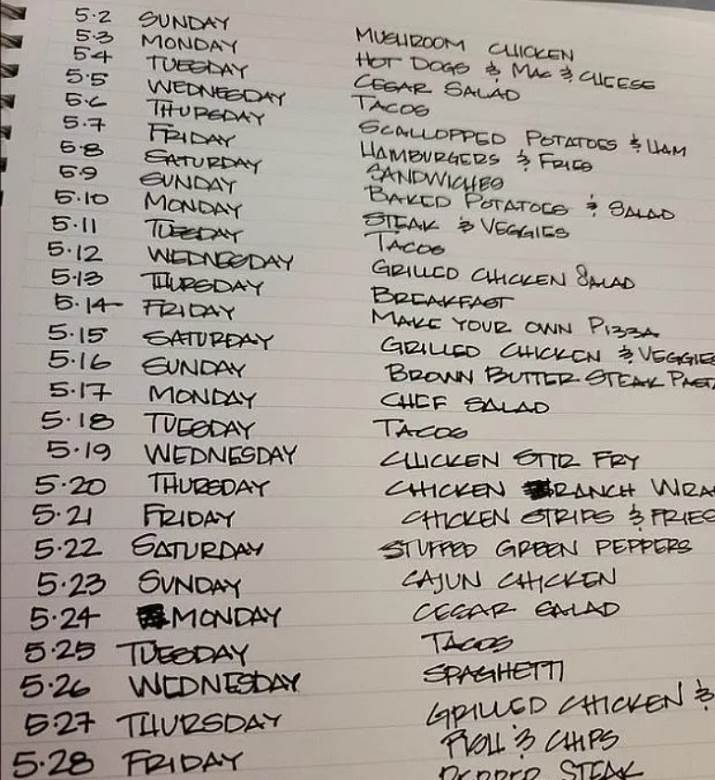 5.2 SUNDAY MUSHROOM CHICKEN
5.3 MONDAY HOT DOGS & MAC & CHEESE
5.4 TUESDAY CESAR SALAD
5.5 WEDNESDAY TACOS
5.6 THURSDAY SCALLOPPED POTATOES & HAM
5.7 FRIDAY HAMBURGERS & FRIES
5.8 SATURDAY SANDWICHES
5.9 SUNDAY BAKED POTATOES & SALAD
5.10 MONDAY STEAK & VEGGIES
5.11 TUESDAY TACOS
5.12 WEDNESDAY GRILLED CHICKEN SALAD
5.13 THURSDAY BREAKFAST
5.14 FRIDAY MAKE YOUR OWN PIZZA
5.15 SATURDAY GRILLED CHICKEN & VEGGIES
5.16 SUNDAY BROWN BUTTER STEAK PASTA
5.17 MONDAY CHEF SALAD
5.18 TUESDAY TACOS
5.19 WEDNESDAY CHICKEN STIR FRY
5.20 THURSDAY CHICKEN RANCH WRA
5.21 FRIDAY CHICKEN STRIPS & FRIES
5.22 SATURDAY STUFFED GREEN PEPPERS
5.23 SUNDAY CAJUN CHICKEN
5.24 MONDAY CESAR SALAD
5.25 TUESDAY TACOS
5.26 WEDNESDAY SPAGHETTI
5.27 THURSDAY GRILLED CHICKEN &
5.28 FRIDAY ROLL & CHIPS
PEPPER STEAK